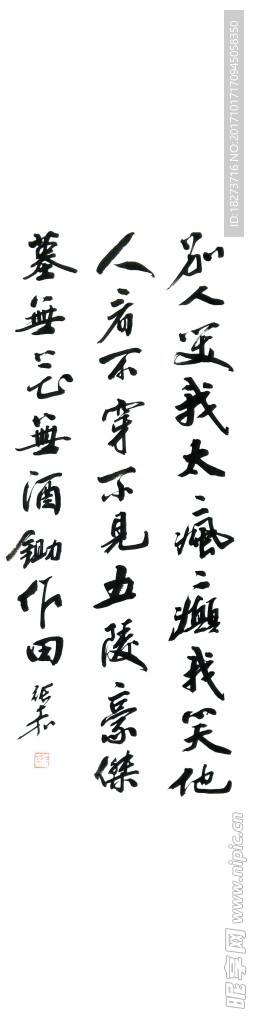 别人笑我太瘋癲我笑他
人看不穿不見五陵豪傑
墓無花無酒鋤作田
ID:18273716 NO:20171017170945058350
昵享网 www.nipic.cn